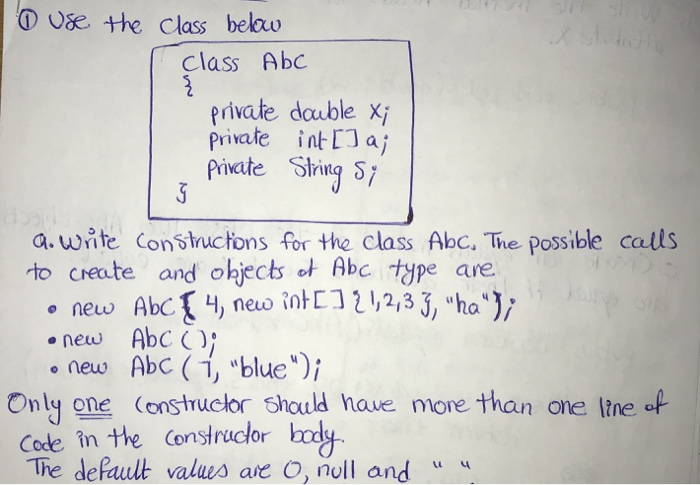 ① Use the class below
class Abc
{
private double x;
private int[] a;
private String s;
}
a. Write constructions for the class Abc. The possible calls
to create and objects of Abc type are
• new Abc{ 4, new int[] {1,2,3}, "ha"};
• new Abc();
• new Abc( 7, "blue");
Only one constructor should have more than one line of
code in the constructor body.
The default values are 0, null and " "